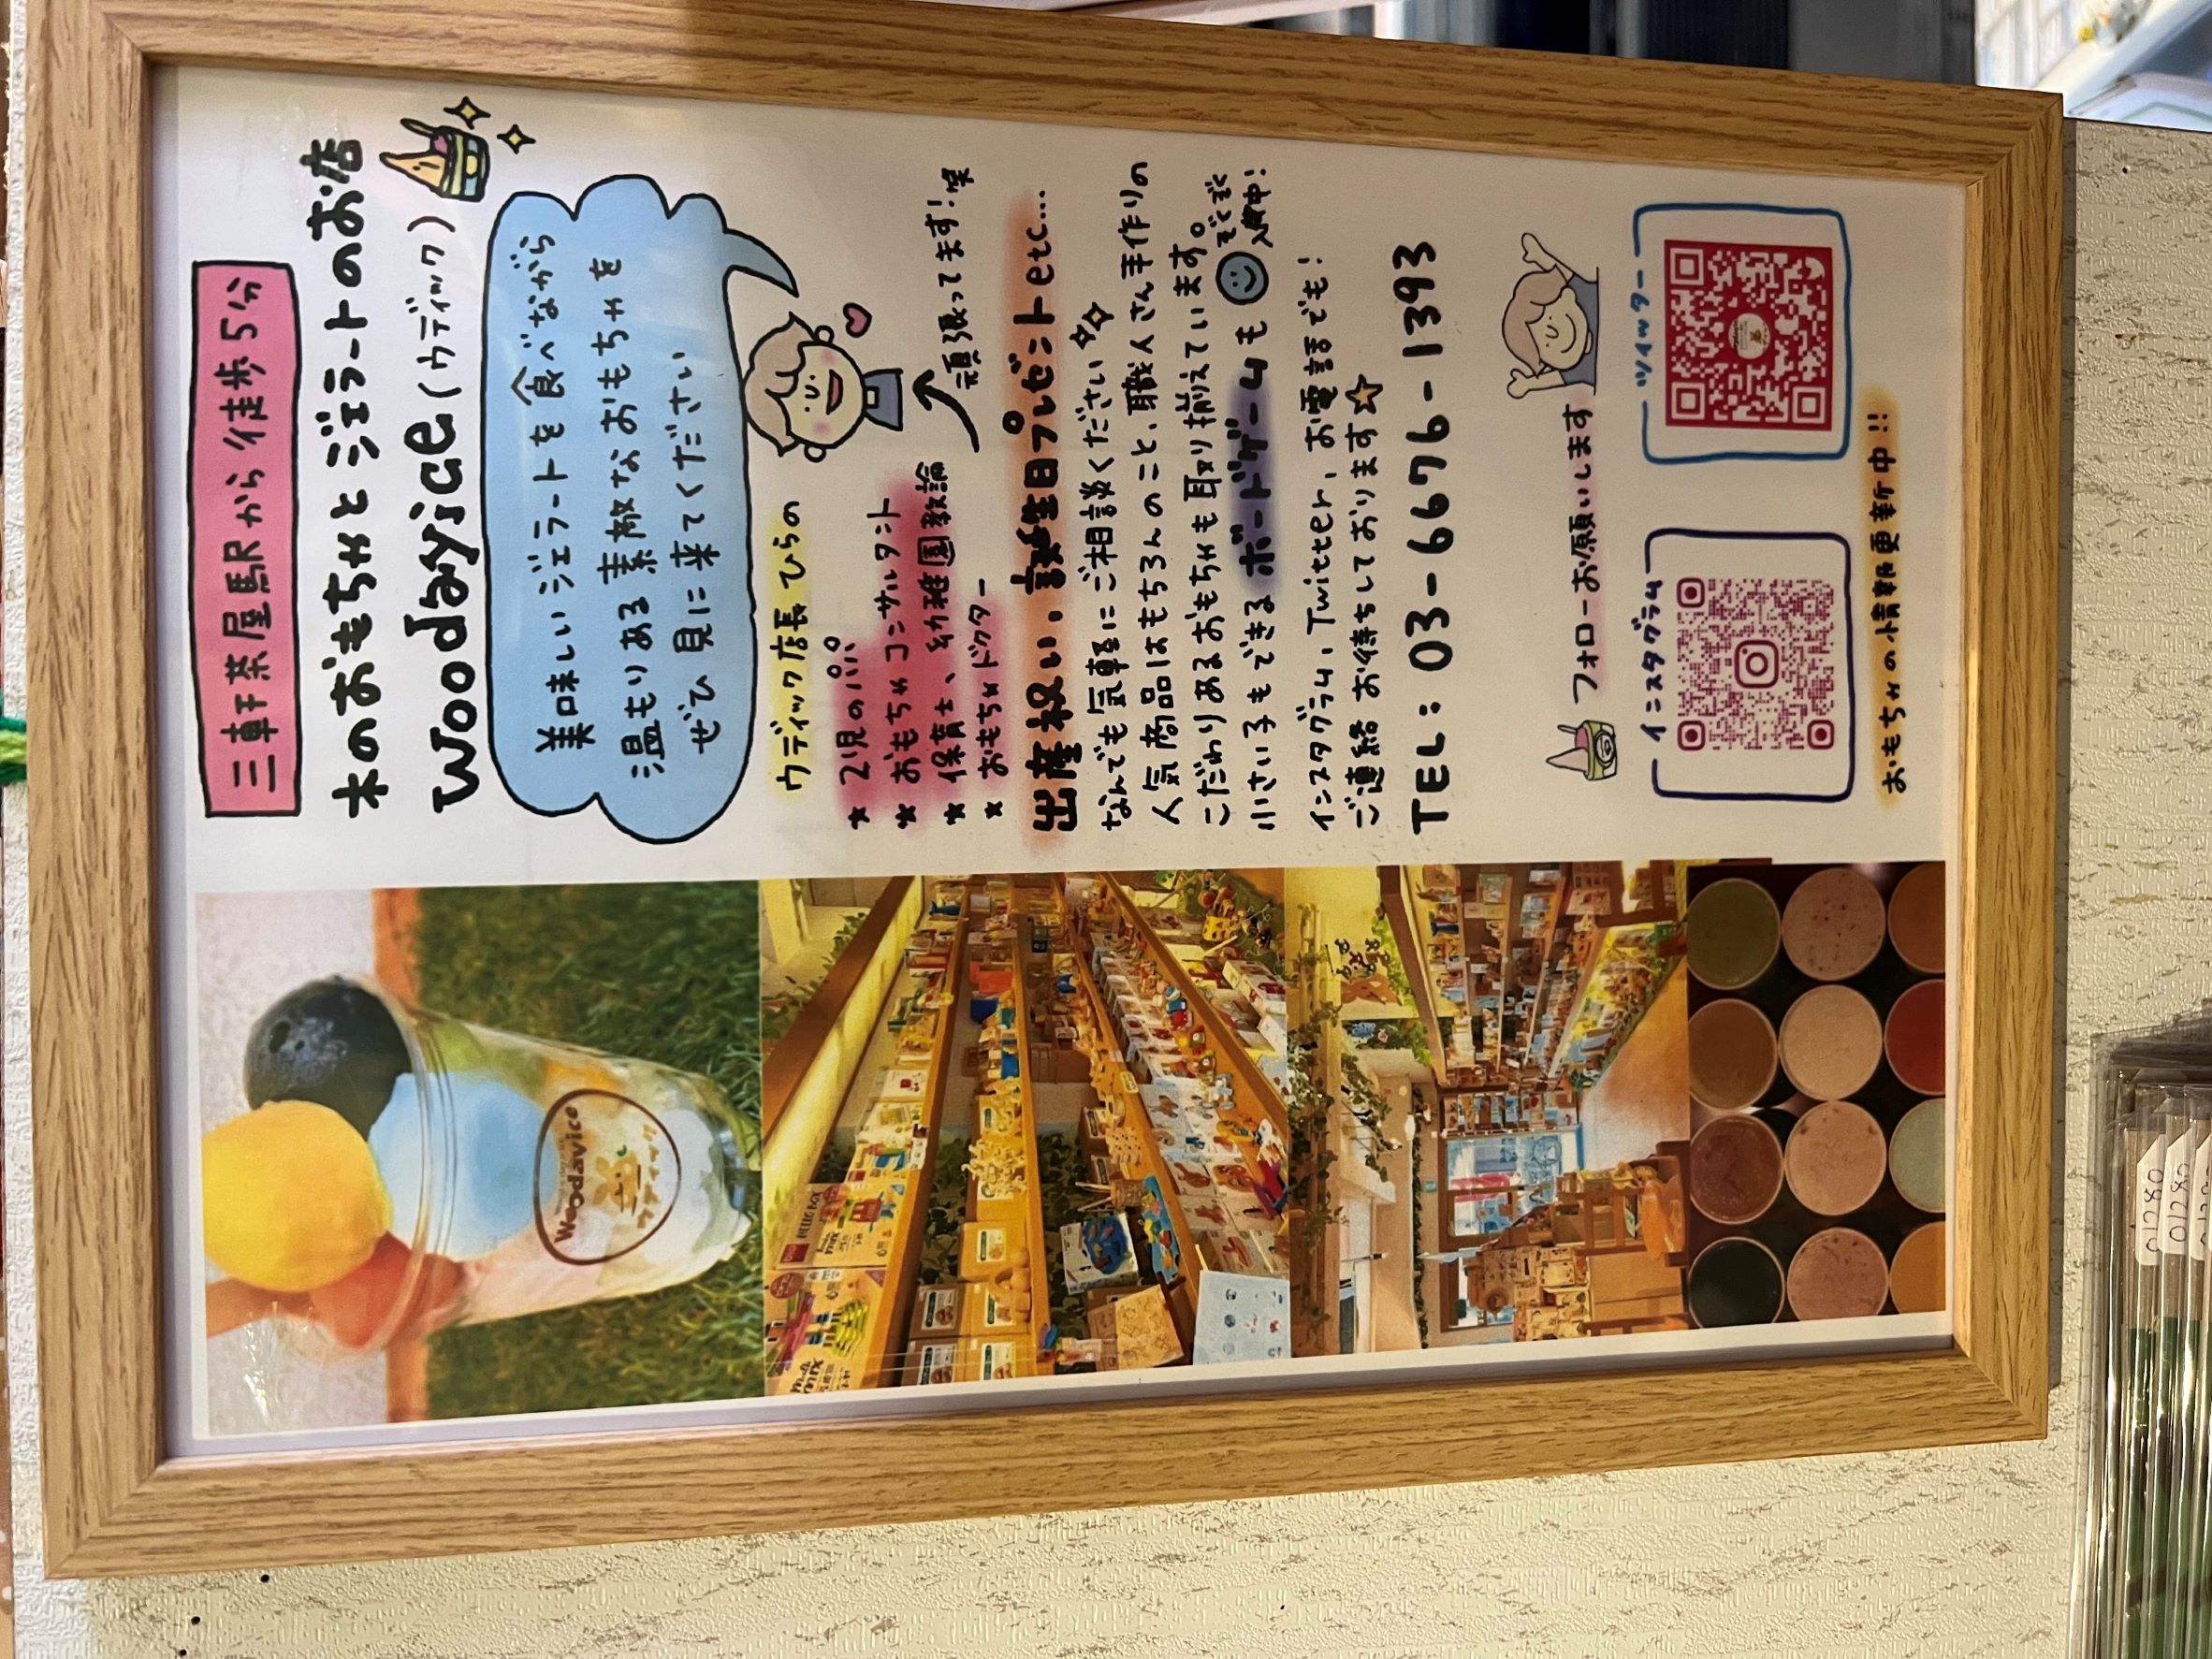 三軒茶屋駅から徒歩5分
木のおもちゃとジェラートのお店
woodayice(ウディック)
美味しいジェラートを食べながら
温もりある素敵なおもちゃを
ぜひ見に来てください
ウディック店長 ひらの
★ 2児のパパ
★ おもちゃコンサルタント
★ 保育士、幼稚園教諭
★ おもちゃドクター
頑張ってます!笑
出産祝い、誕生日プレゼントetc...
なんでも気軽にご相談ください
人気商品はもちろんのこと、職人さん手作りの
こだわりあるおもちゃも取り揃えています。
小さい子もできるボードゲームも
ぞくぞく
入荷中!
インスタグラム、Twitter、お電話でも!
ご連絡お待ちしております☆
TEL: 03-6676-1393
フォローお願いします
インスタグラム
ツイッター
おもちゃの小情報更新中!!
Woodayice
ウディック
01280
01280